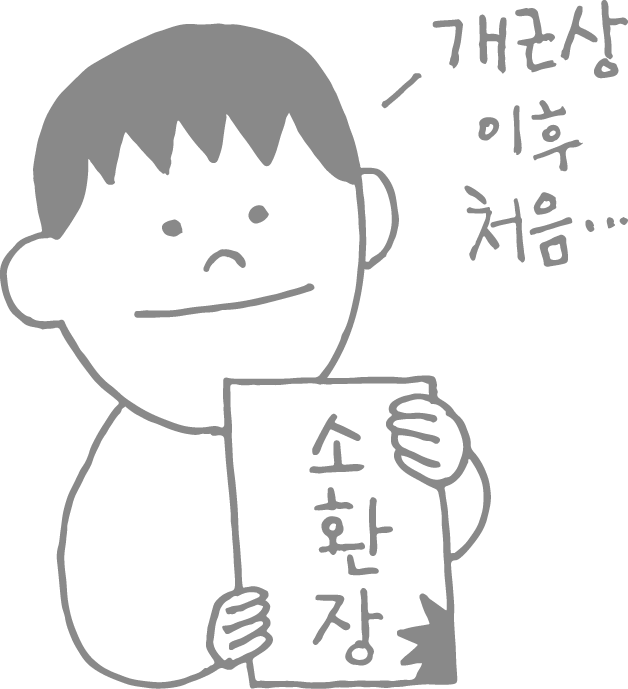 개근상
이후
처음...
소
환
장